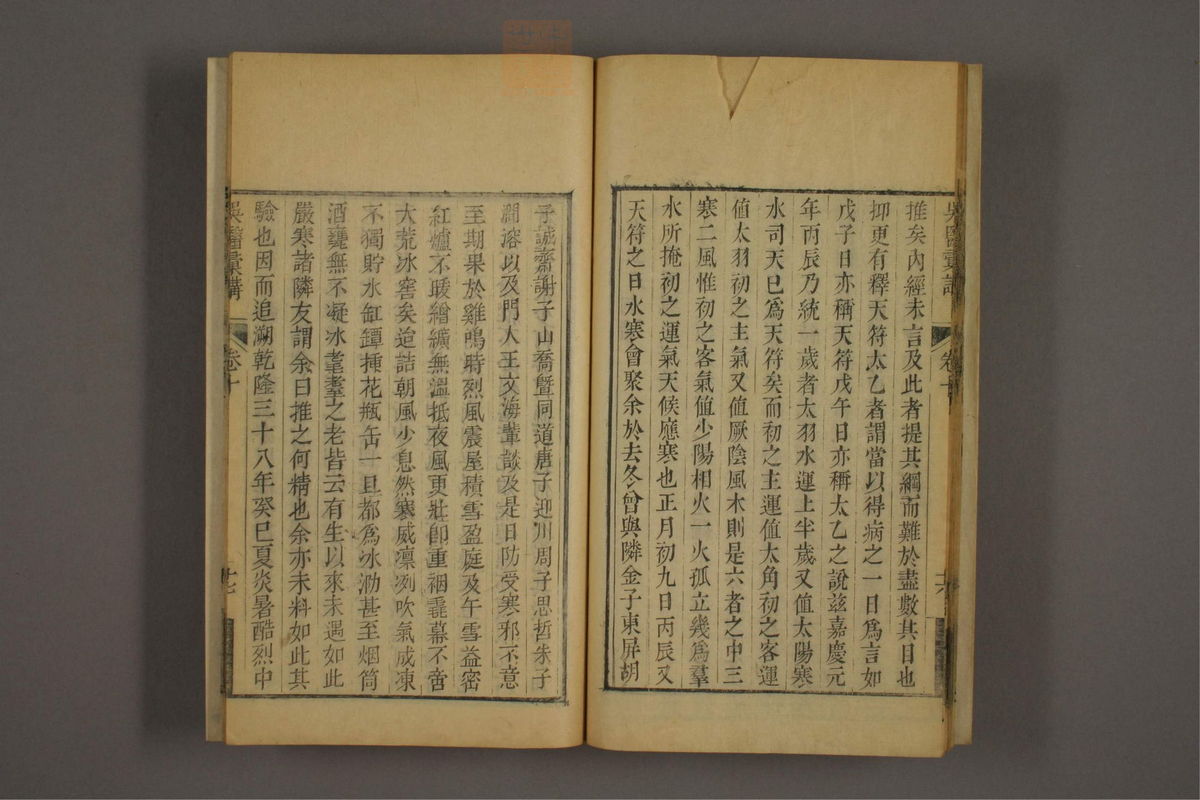 吳醫彙講 卷十 十六
推矣內經未言及此者提其綱而難於盡數其目也
抑更有釋天符太乙者謂當以得病之一日爲言如
戊子日亦稱天符戊午日亦稱太乙之說茲嘉慶元
年丙辰乃統一歲者太羽水運上半歲又值太陽寒
水司天已爲天符矣而初之主運值太角初之客運
值太羽初之主氣又值厥陰風木則是六者之中三
寒二風惟初之客氣值少陽相火一火孤立幾爲羣
水所掩初之運氣天候應寒也正月初九日丙辰又
天符之日水寒會聚余於去冬曾與隣金子東屏胡
子誠齋謝子山喬暨同道唐子迎川周子思哲朱子
澗溶以及門人王文海輩談及是日防受寒邪不意
至期果於雞鳴時烈風震屋積雪盈庭及午雪益密
紅爐不暖繒纊無溫抵夜風更壯卽重裀毳幕不啻
大荒冰窖矣迨詰朝風少息然寒威凛冽吹氣成凍
不獨貯水缸罈揷花瓶缶一旦都爲冰泐甚至烟筒
酒甕無不凝冰耄耋之老皆云有生以來未遇如此
嚴寒諸隣友謂余曰推之何精也余亦未料如此其
驗也因而追溯乾隆三十八年癸巳夏炎暑酷烈中
吳醫彙講 卷十 十七